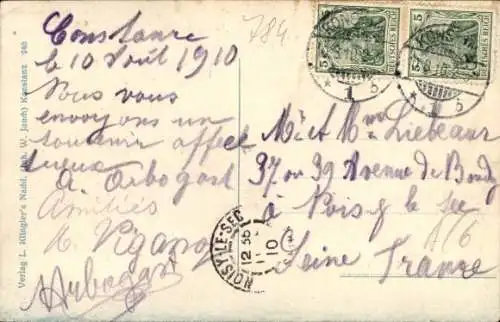 Constance
le 10 Août 1910
Nous vous
envoyons un
souvenir affec
tueux
A. Arbogast
Amitiés
Arbogast
784
M. et Mme Liebeaux
37 ou 39 Avenue de Bondy
à Noisy le Sec
Seine France
5 DEUTSCHES REICH 5
DEUTSCHES REICH
NOISY-LE-SEC
12 35
10
Verlag L. Klingler's Nachf. (Inh. W. Jensch) Konstanz